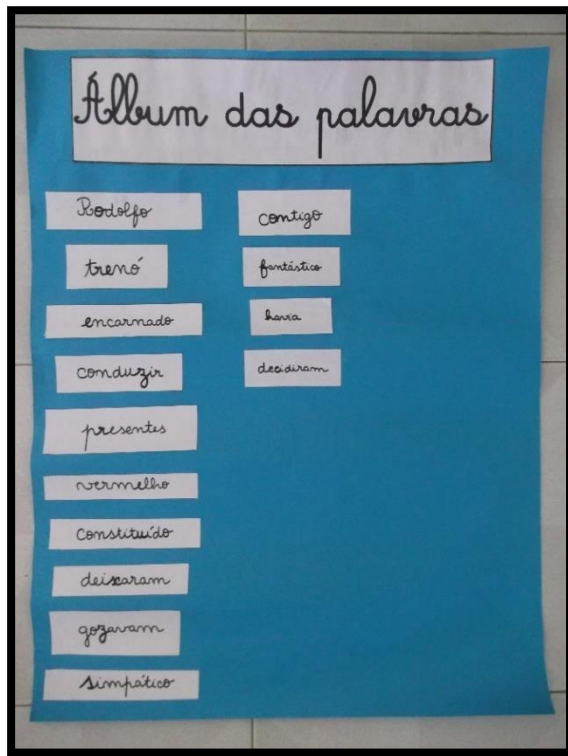 Álbum das palavras
Rodolfo
trenó
encarnado
conduzir
presentes
vermelho
constituído
deixaram
gozavam
simpático
contigo
fantástico
havia
decidiram